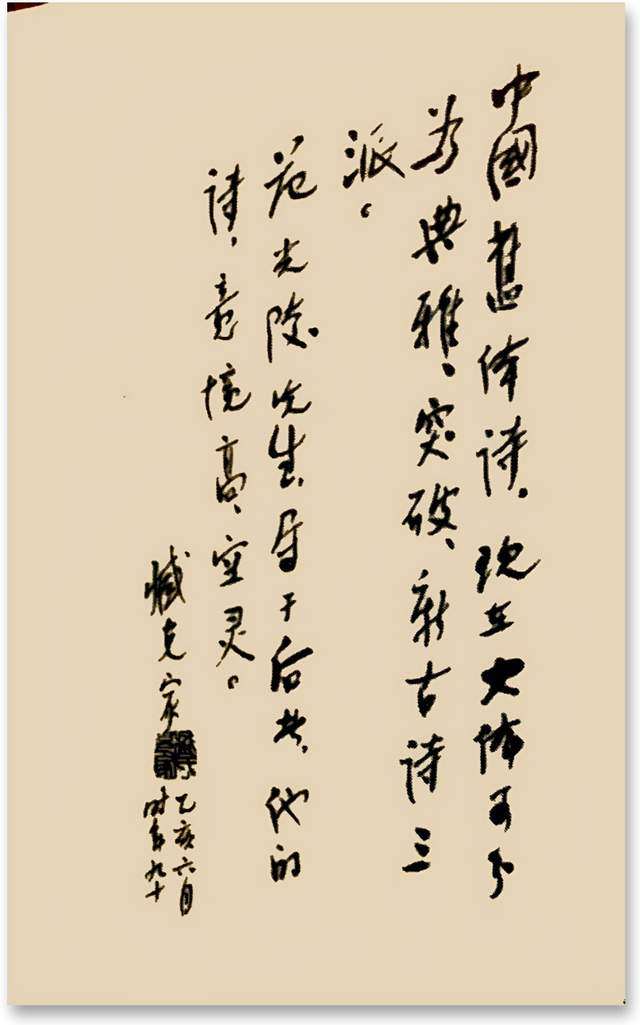 中國舊体诗，现在大体可分
为典雅、突破、新古诗三
派。
范光陵先生，属于后者，他的
诗，意境高、空灵。
臧克家
乙亥六月
时年九十